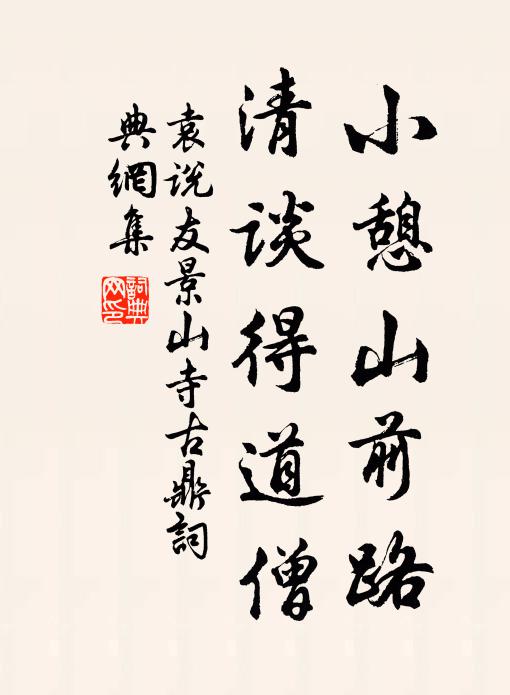 小憩山前路
清談得道僧
袁説友景山寺古鼎詞
典網集
詞典
网印